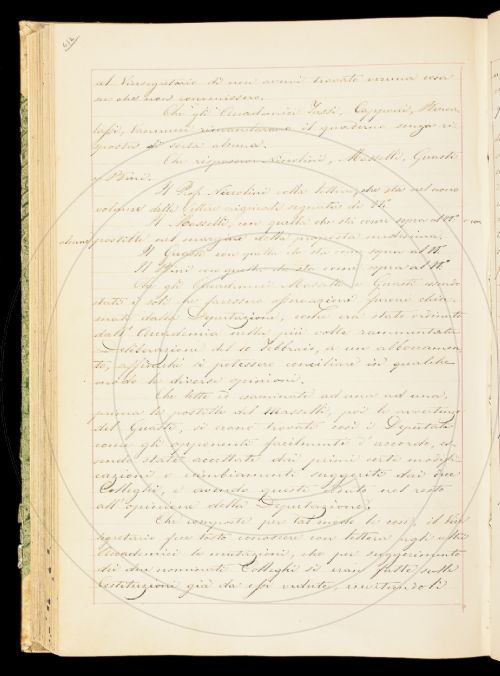 al Vicesegretario di non avervi trovata veruna cosa
se che non convenissero.
Che gli Accademici Tassi, Capponi,
Vannucci rimandarono il quaderno senza ri-
sposta di sorta alcuna.
Che risposero Niccolini, Masselli, Guasti
e Bini.
Il Prof. Niccolini colla lettera, che sta nel nono
volume delle lettere originali segnata di N.°
Il Masselli, con quella che sta come sopra al N.° e con
alcune postille nel margine della proposta medesima.
Il Guasti con quella che sta come sopra al N.
Il Bini con quella che sta come sopra al N.°
Che gli Accademici Masselli e Guasti essendo
stati i soli che facessero osservazioni furono chia-
mati dalla Deputazione, come era stato ordinato
dall' Accademia nella più volte rammentata
deliberazione del 10 Febbraio, a un abboccamen-
to, affinchè si potessero conciliare in qualche
modo le diverse opinioni.
Che lette e esaminate ad una ad una,
prima le postille del Masselli, poi le avvertenze
del Guasti, si erano trovati così i Deputati
come gli opponenti facilmente d'accordo, es-
sendo state accettate dai primi certe modifi-
cazioni e cambiamenti suggeriti dai due
Colleghi, e avendo questi dato nel resto
all' opinione della Deputazione.
Che composte per tal modo le cose, il Vice
segretario fece tosto conoscere con lettera agli altri
Accademici le mutazioni, che per suggerimento
dei due nominati Colleghi si eran fatte sulle
Costituzioni già da essi vedute, invitandoli